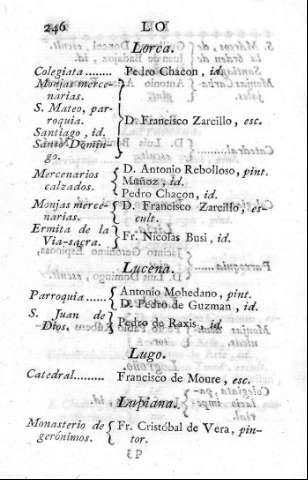 246 LO
Lorca.
Colegiata........ Pedro Chacon, id.
Monjas merce-
narias.
S. Mateo, par-
roquia. D. Francisco Zarcillo, esc.
Santiago, id.
Santo Domin-
go.
Mercenarios D. Antonio Rebolloso, pint.
calzados. Muñoz, id.
Pedro Chaçon, id.
Monjas merce- D. Francisco Zarcillo, es-
narias. cult.
Ermita de la
Via-sacra. Fr. Nicolas Busi, id.
Lucena.
Parroquia ...... Antonio Mohedano, pint.
D. Pedro de Guzman, id.
S. Juan de
Dios. Pedro de Raxis, id.
Lugo.
Catedral......... Francisco de Moure, esc.
Lupiana.
Monasterio de Fr. Cristóbal de Vera, pin-
gerónimos. tor.